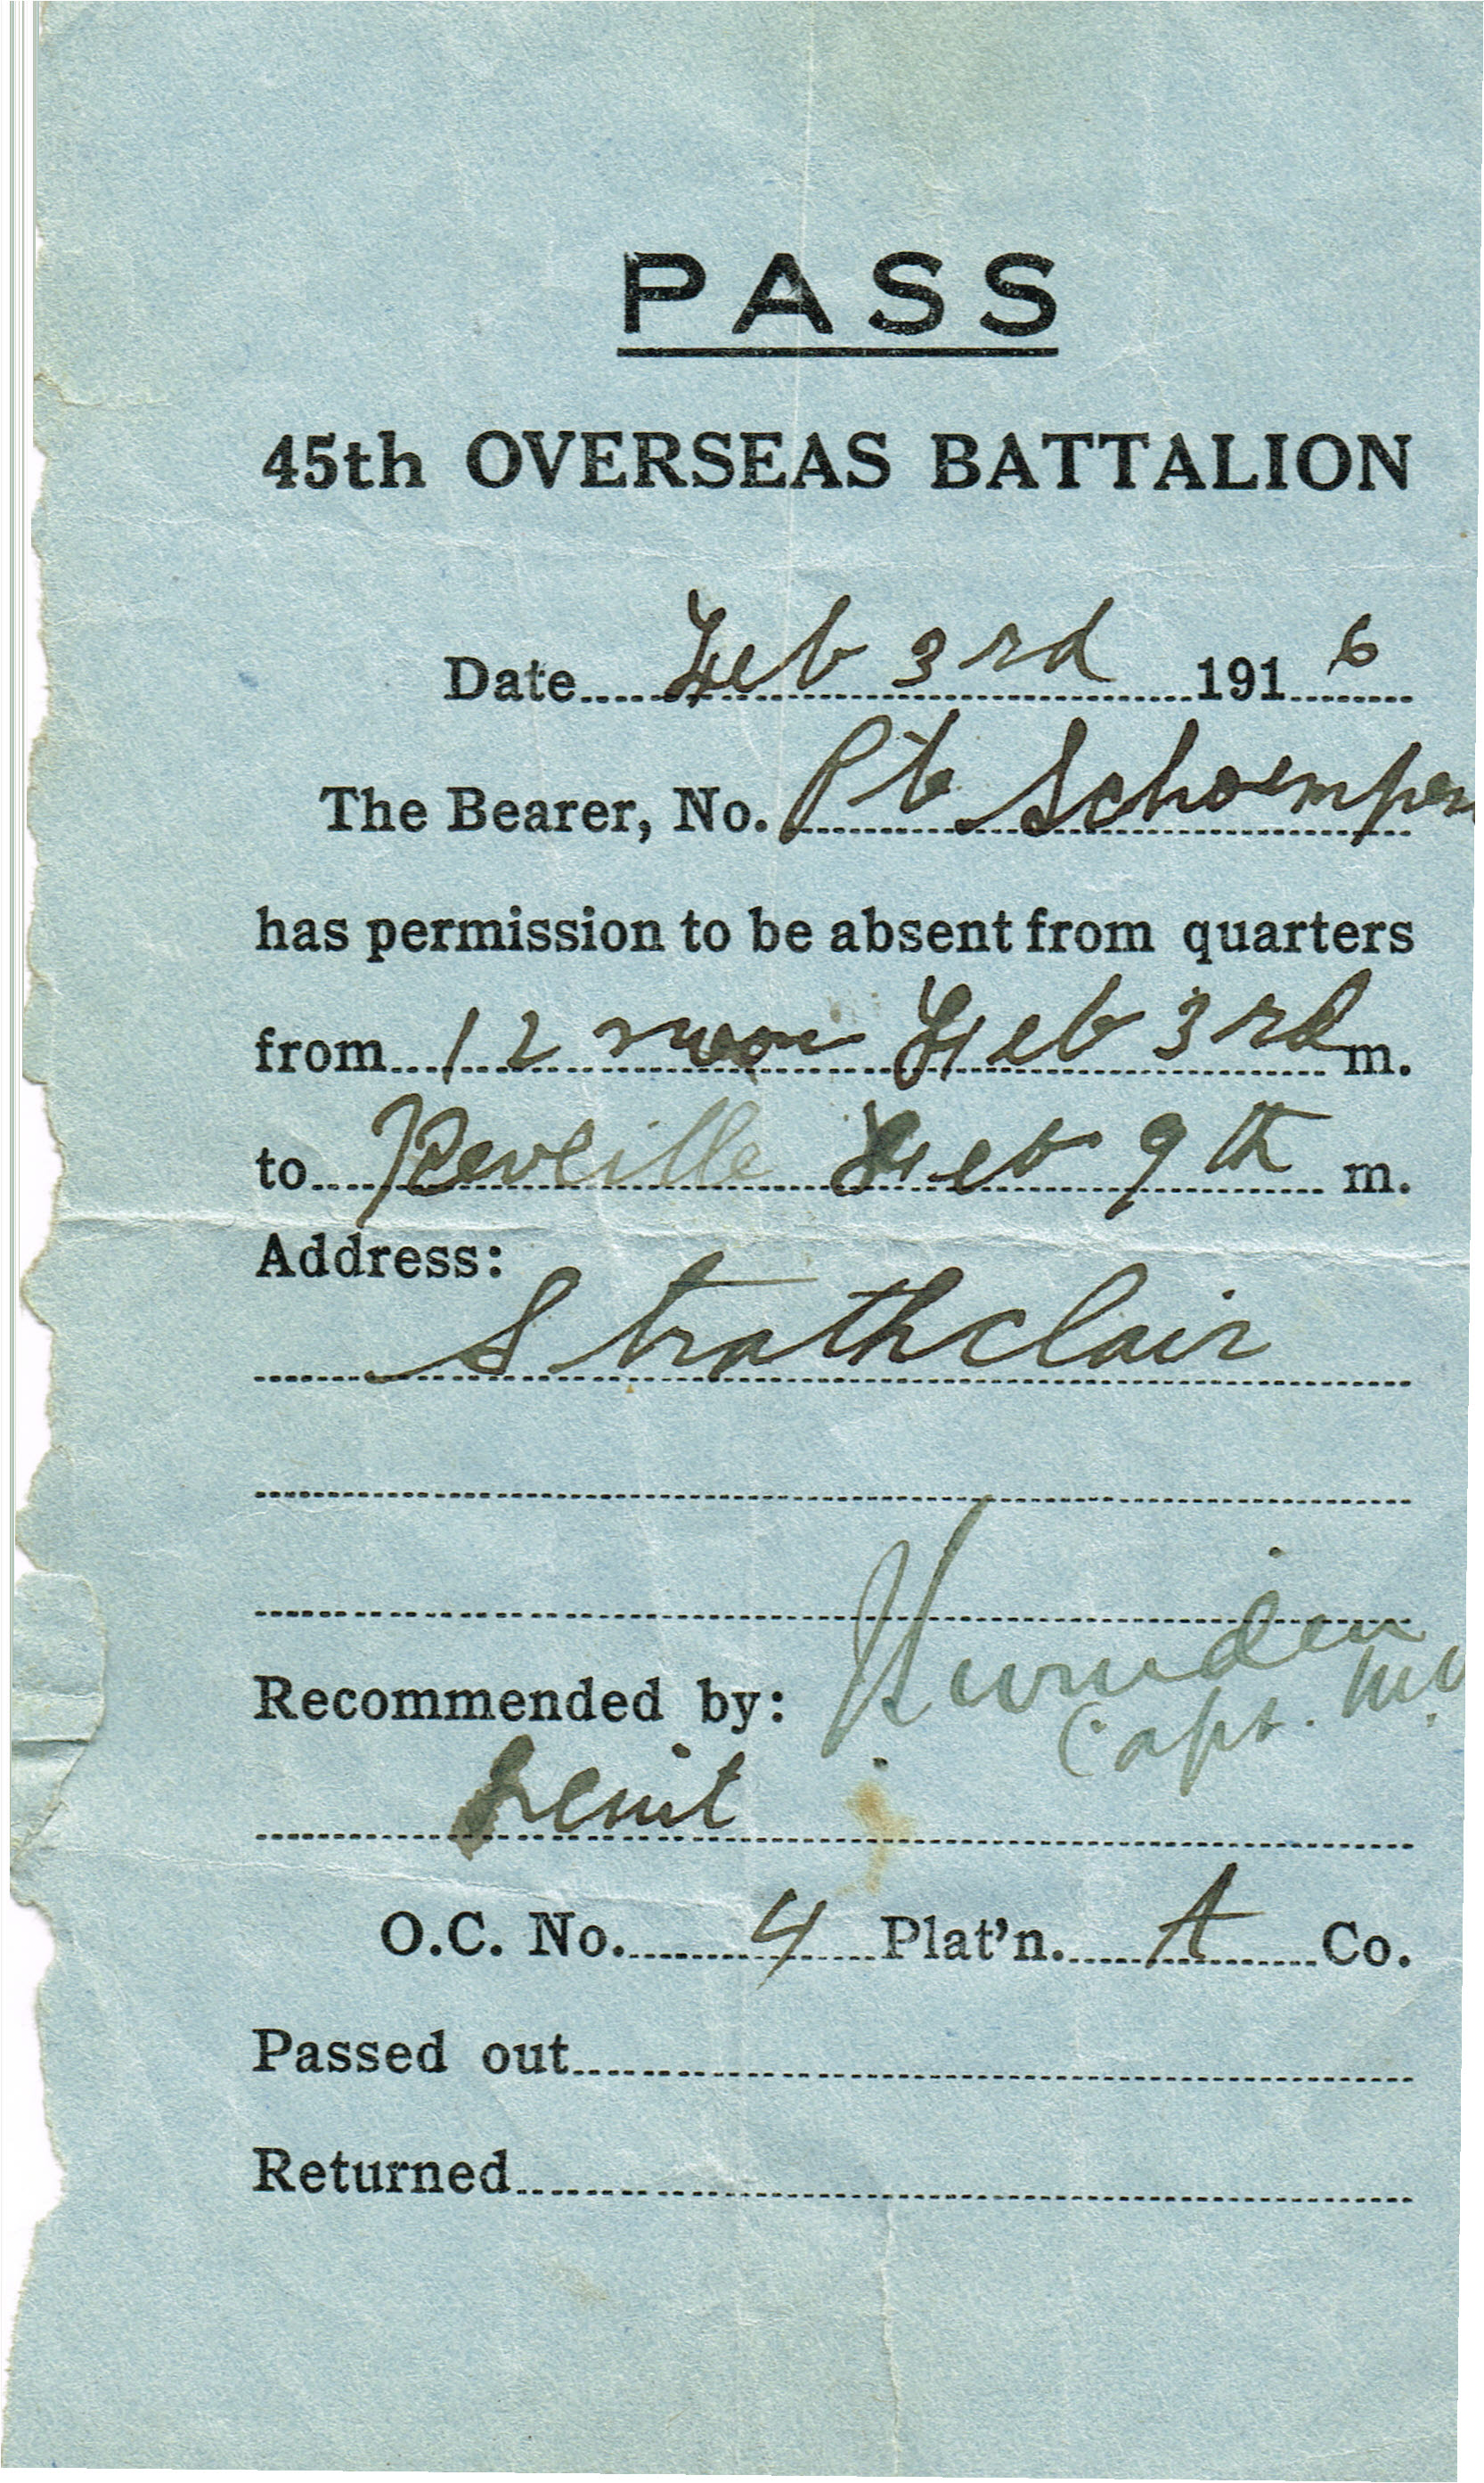 PASS
45th OVERSEAS BATTALION
Date Feb 3rd 1916
The Bearer, No. Pte Schoemper
has permission to be absent from quarters
from 12 noon Feb 3rd m.
to Reveille Feb 9th m.
Address:
Strathclair
Recommended by:
Capt.
Leiut
O.C. No. 4 Plat'n. A Co.
Passed out
Returned